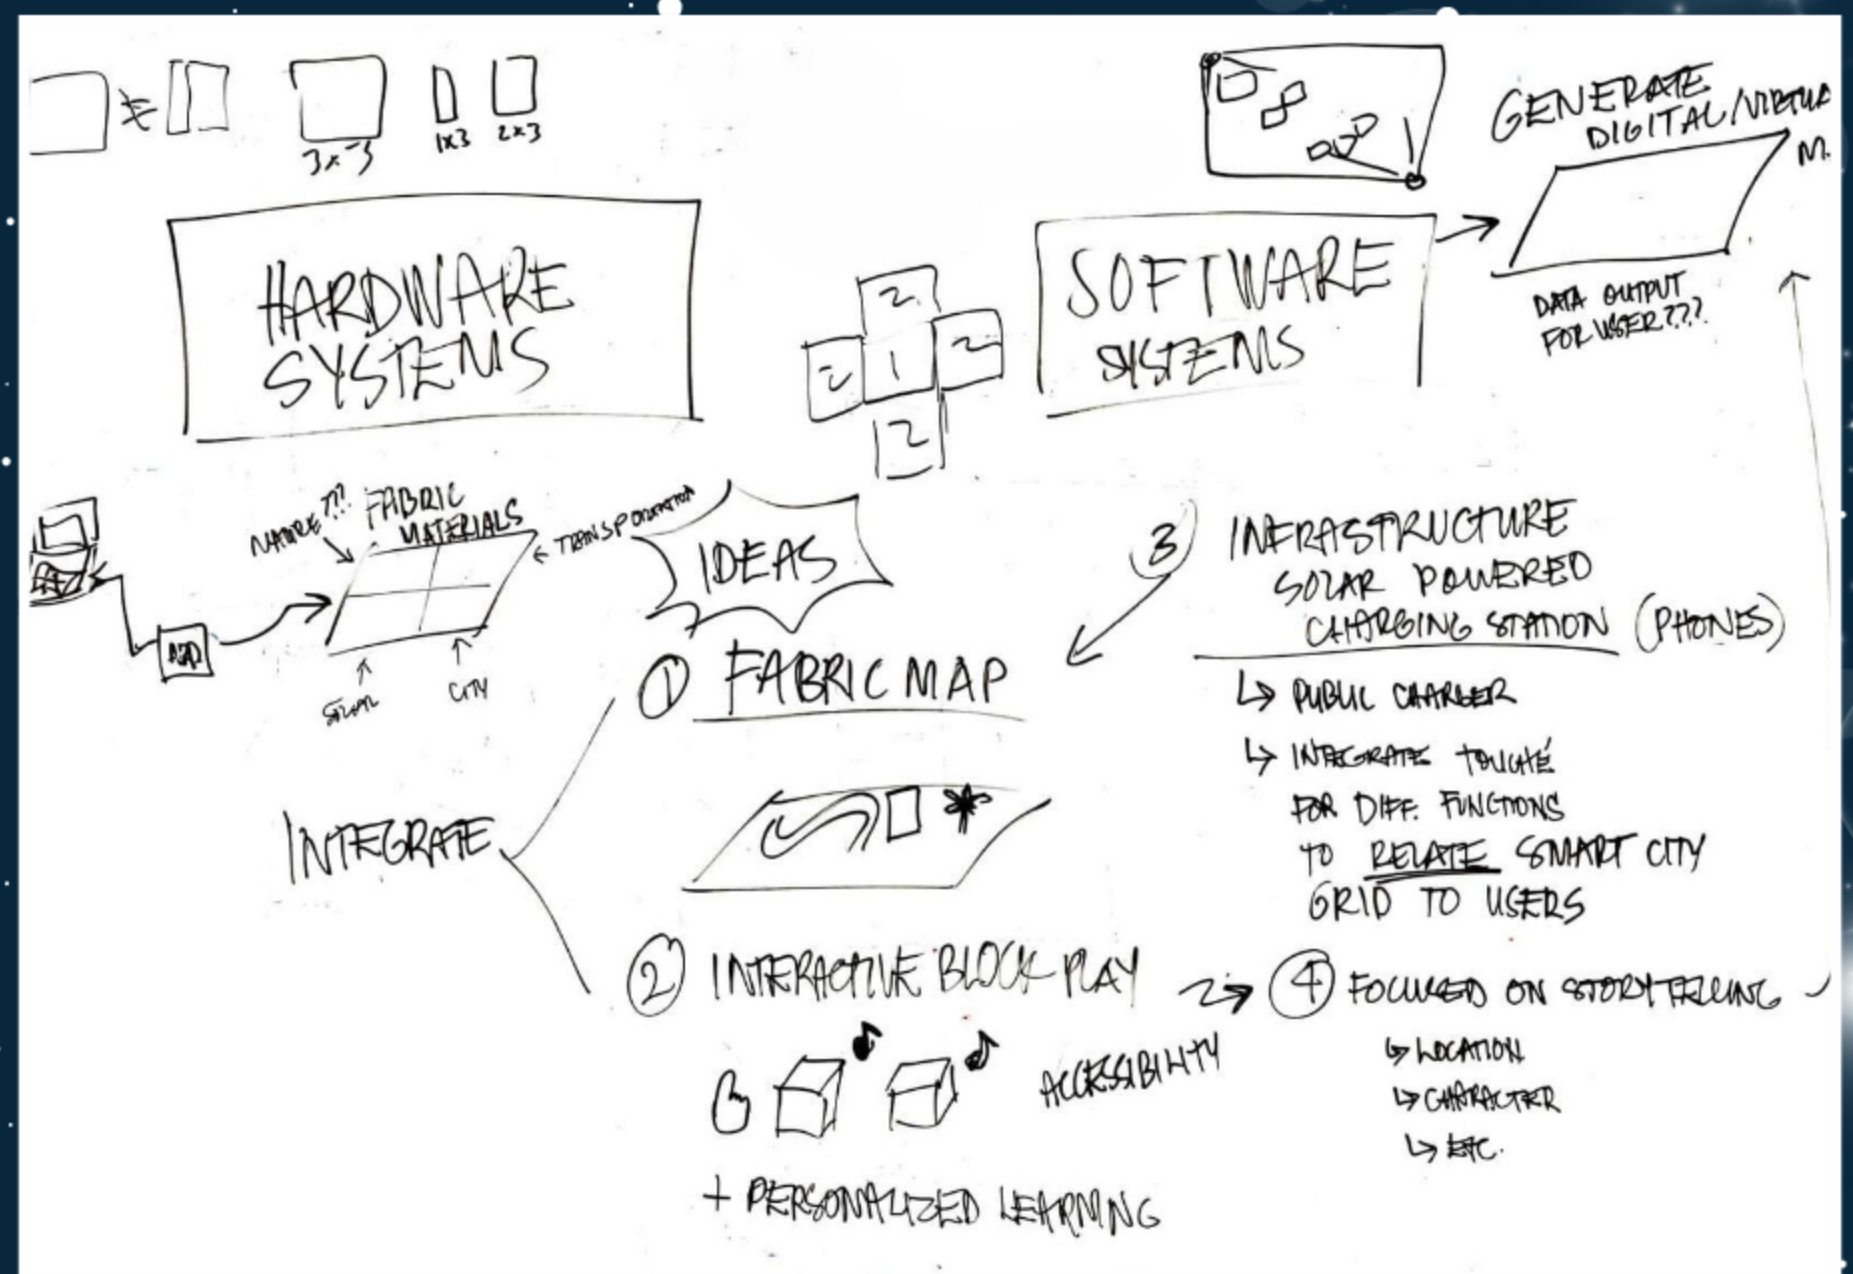 3x3
1x3
2x3
GENERATE
DIGITAL/VIRTUA
M.
HARDWARE
SYSTEMS
2
2
1
2
2
SOFTWARE
SYSTEMS
DATA OUTPUT
FOR USER???
NATURE???
FABRIC
MATERIALS
TRANSPORTATION
CITY
IDEAS
1 FABRIC MAP
INTEGRATE
2 INTERACTIVE BLOCK PLAY
ACCESSIBILITY
+ PERSONALIZED LEARNING
3 INFRASTRUCTURE
SOLAR POWERED
CHARGING STATION (PHONES)
PUBLIC CHARGER
INTEGRATE TOUCHÉ
FOR DIFF. FUNCTIONS
TO RELATE SMART CITY
GRID TO USERS
4 FOCUSED ON STORYTELLING
LOCATION
CHARACTER
ETC.